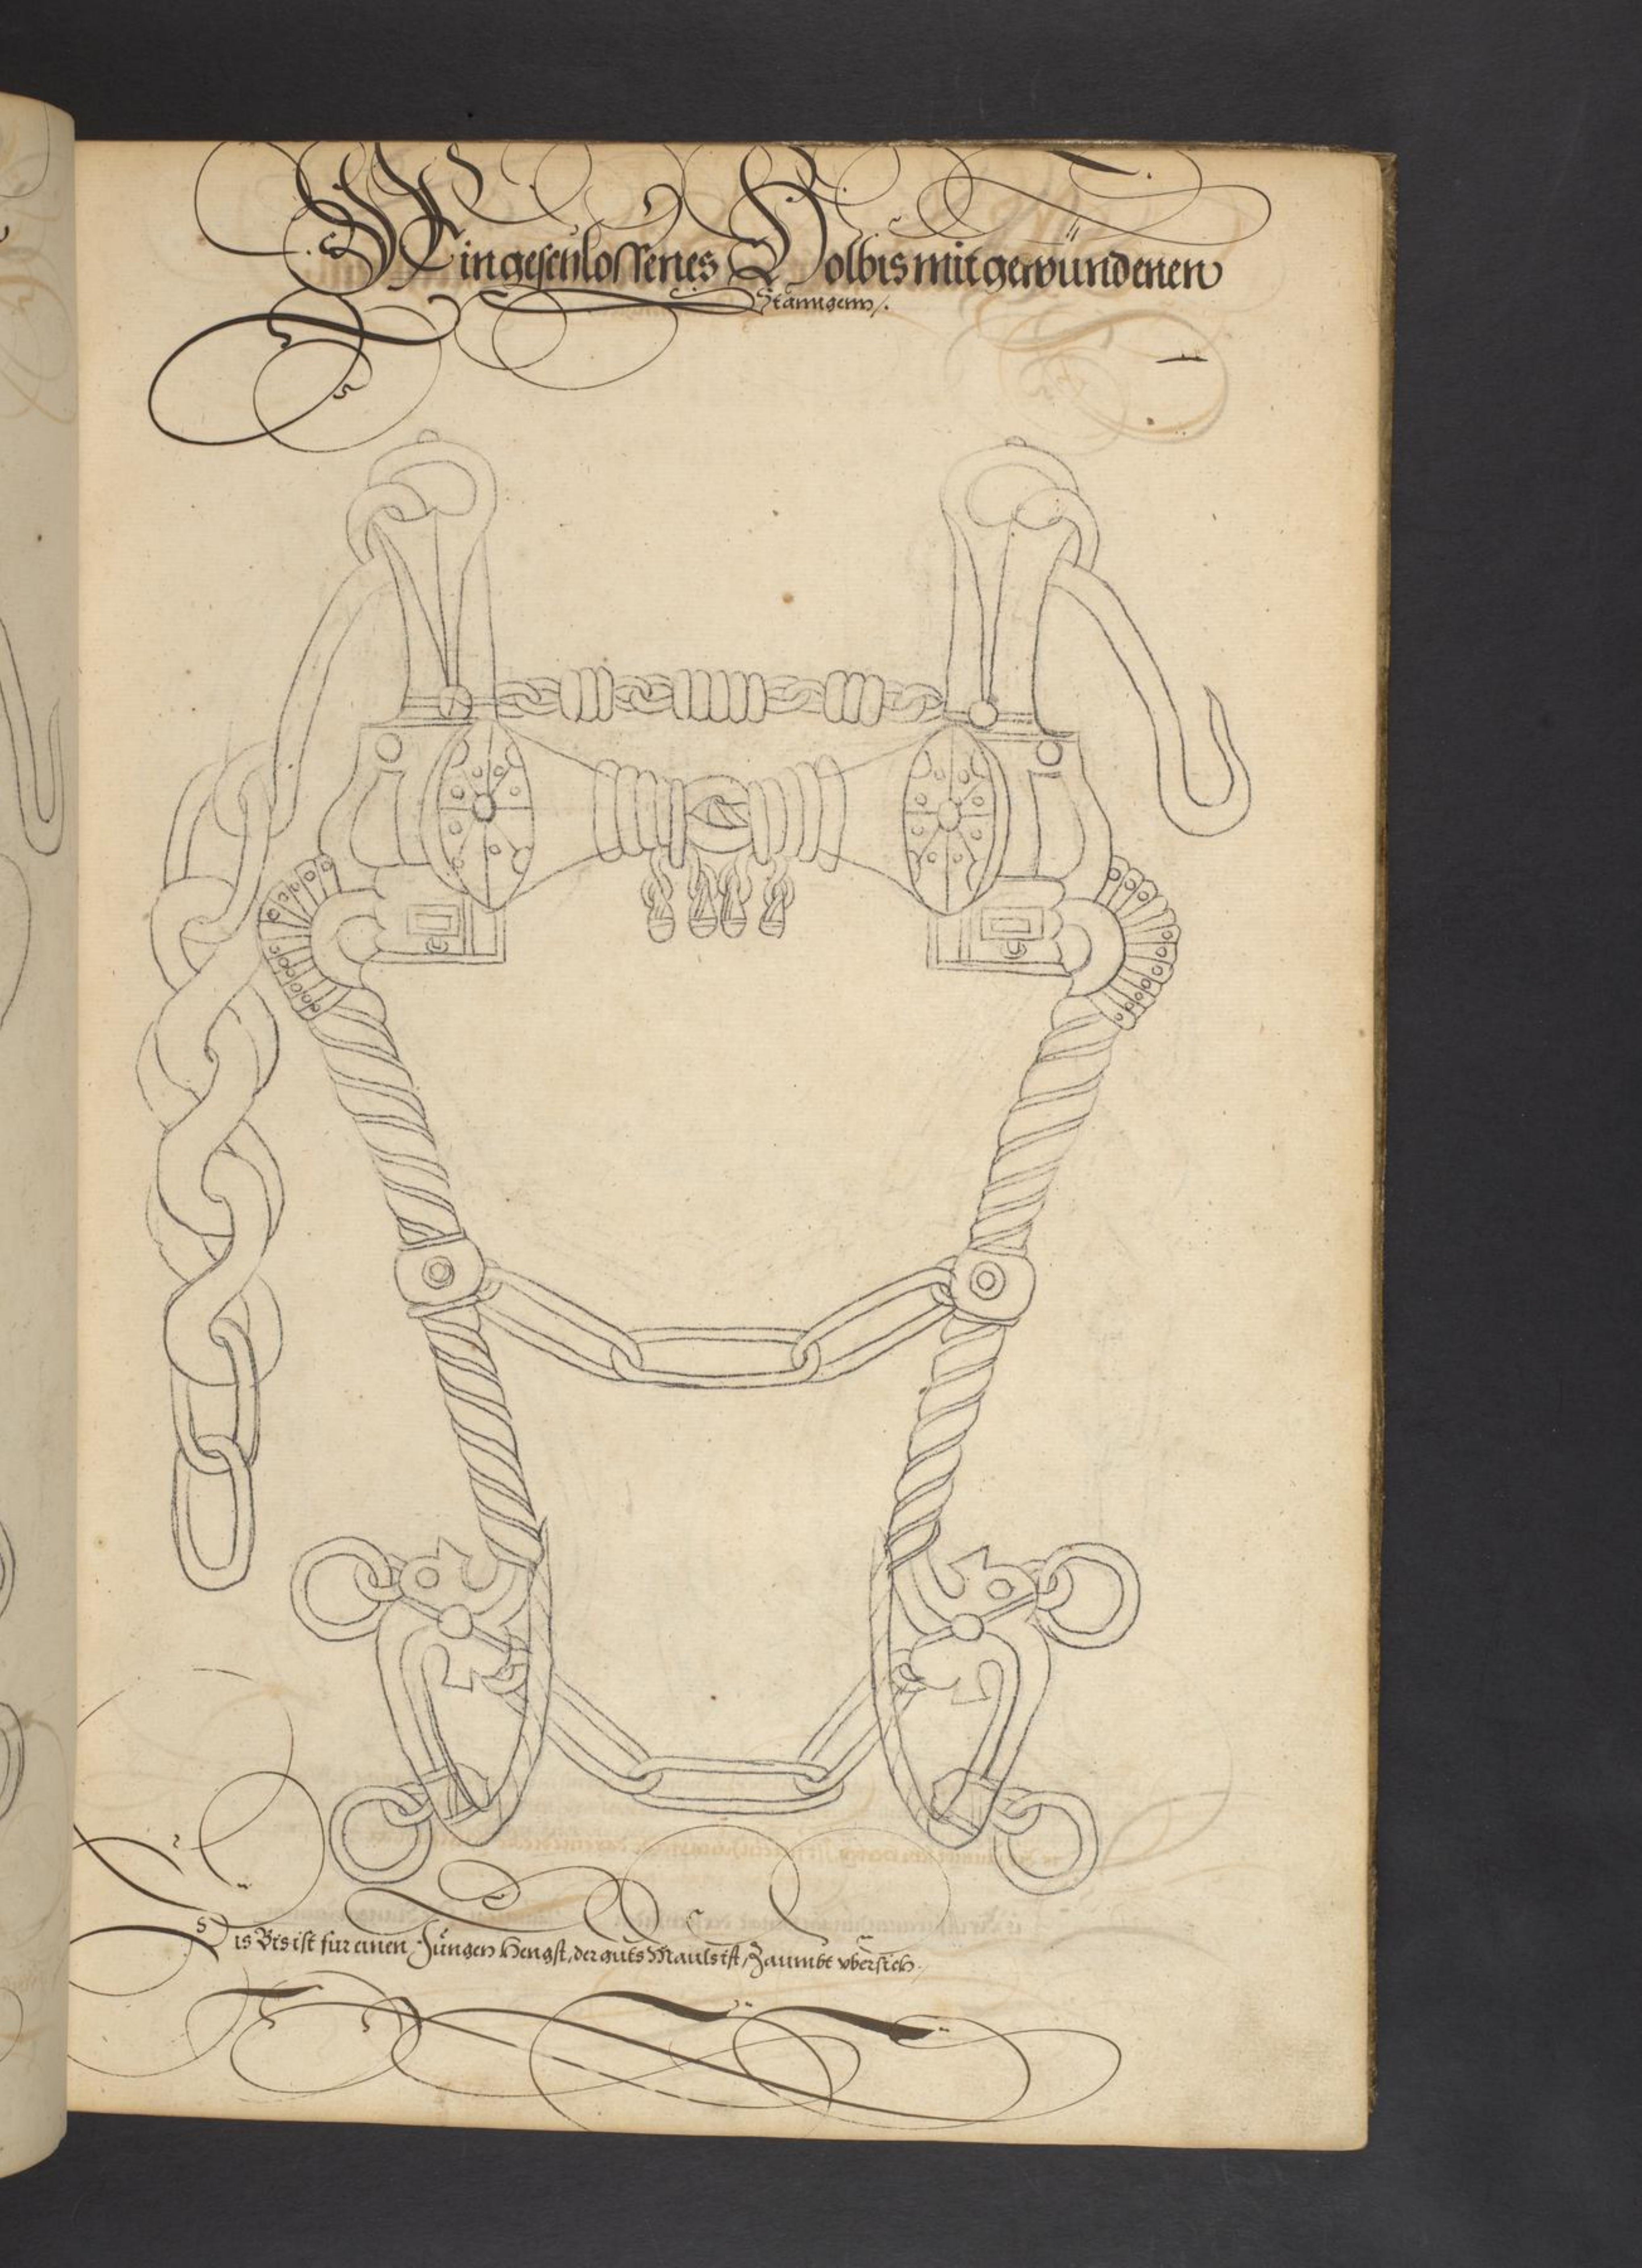 Ein geschlossenes Holbis mit gewündenen
Stanngenn /.
Dis Bis ist fur einen Jüngen Hengst, der guts Mauls ist, Zaumbt vbersich.